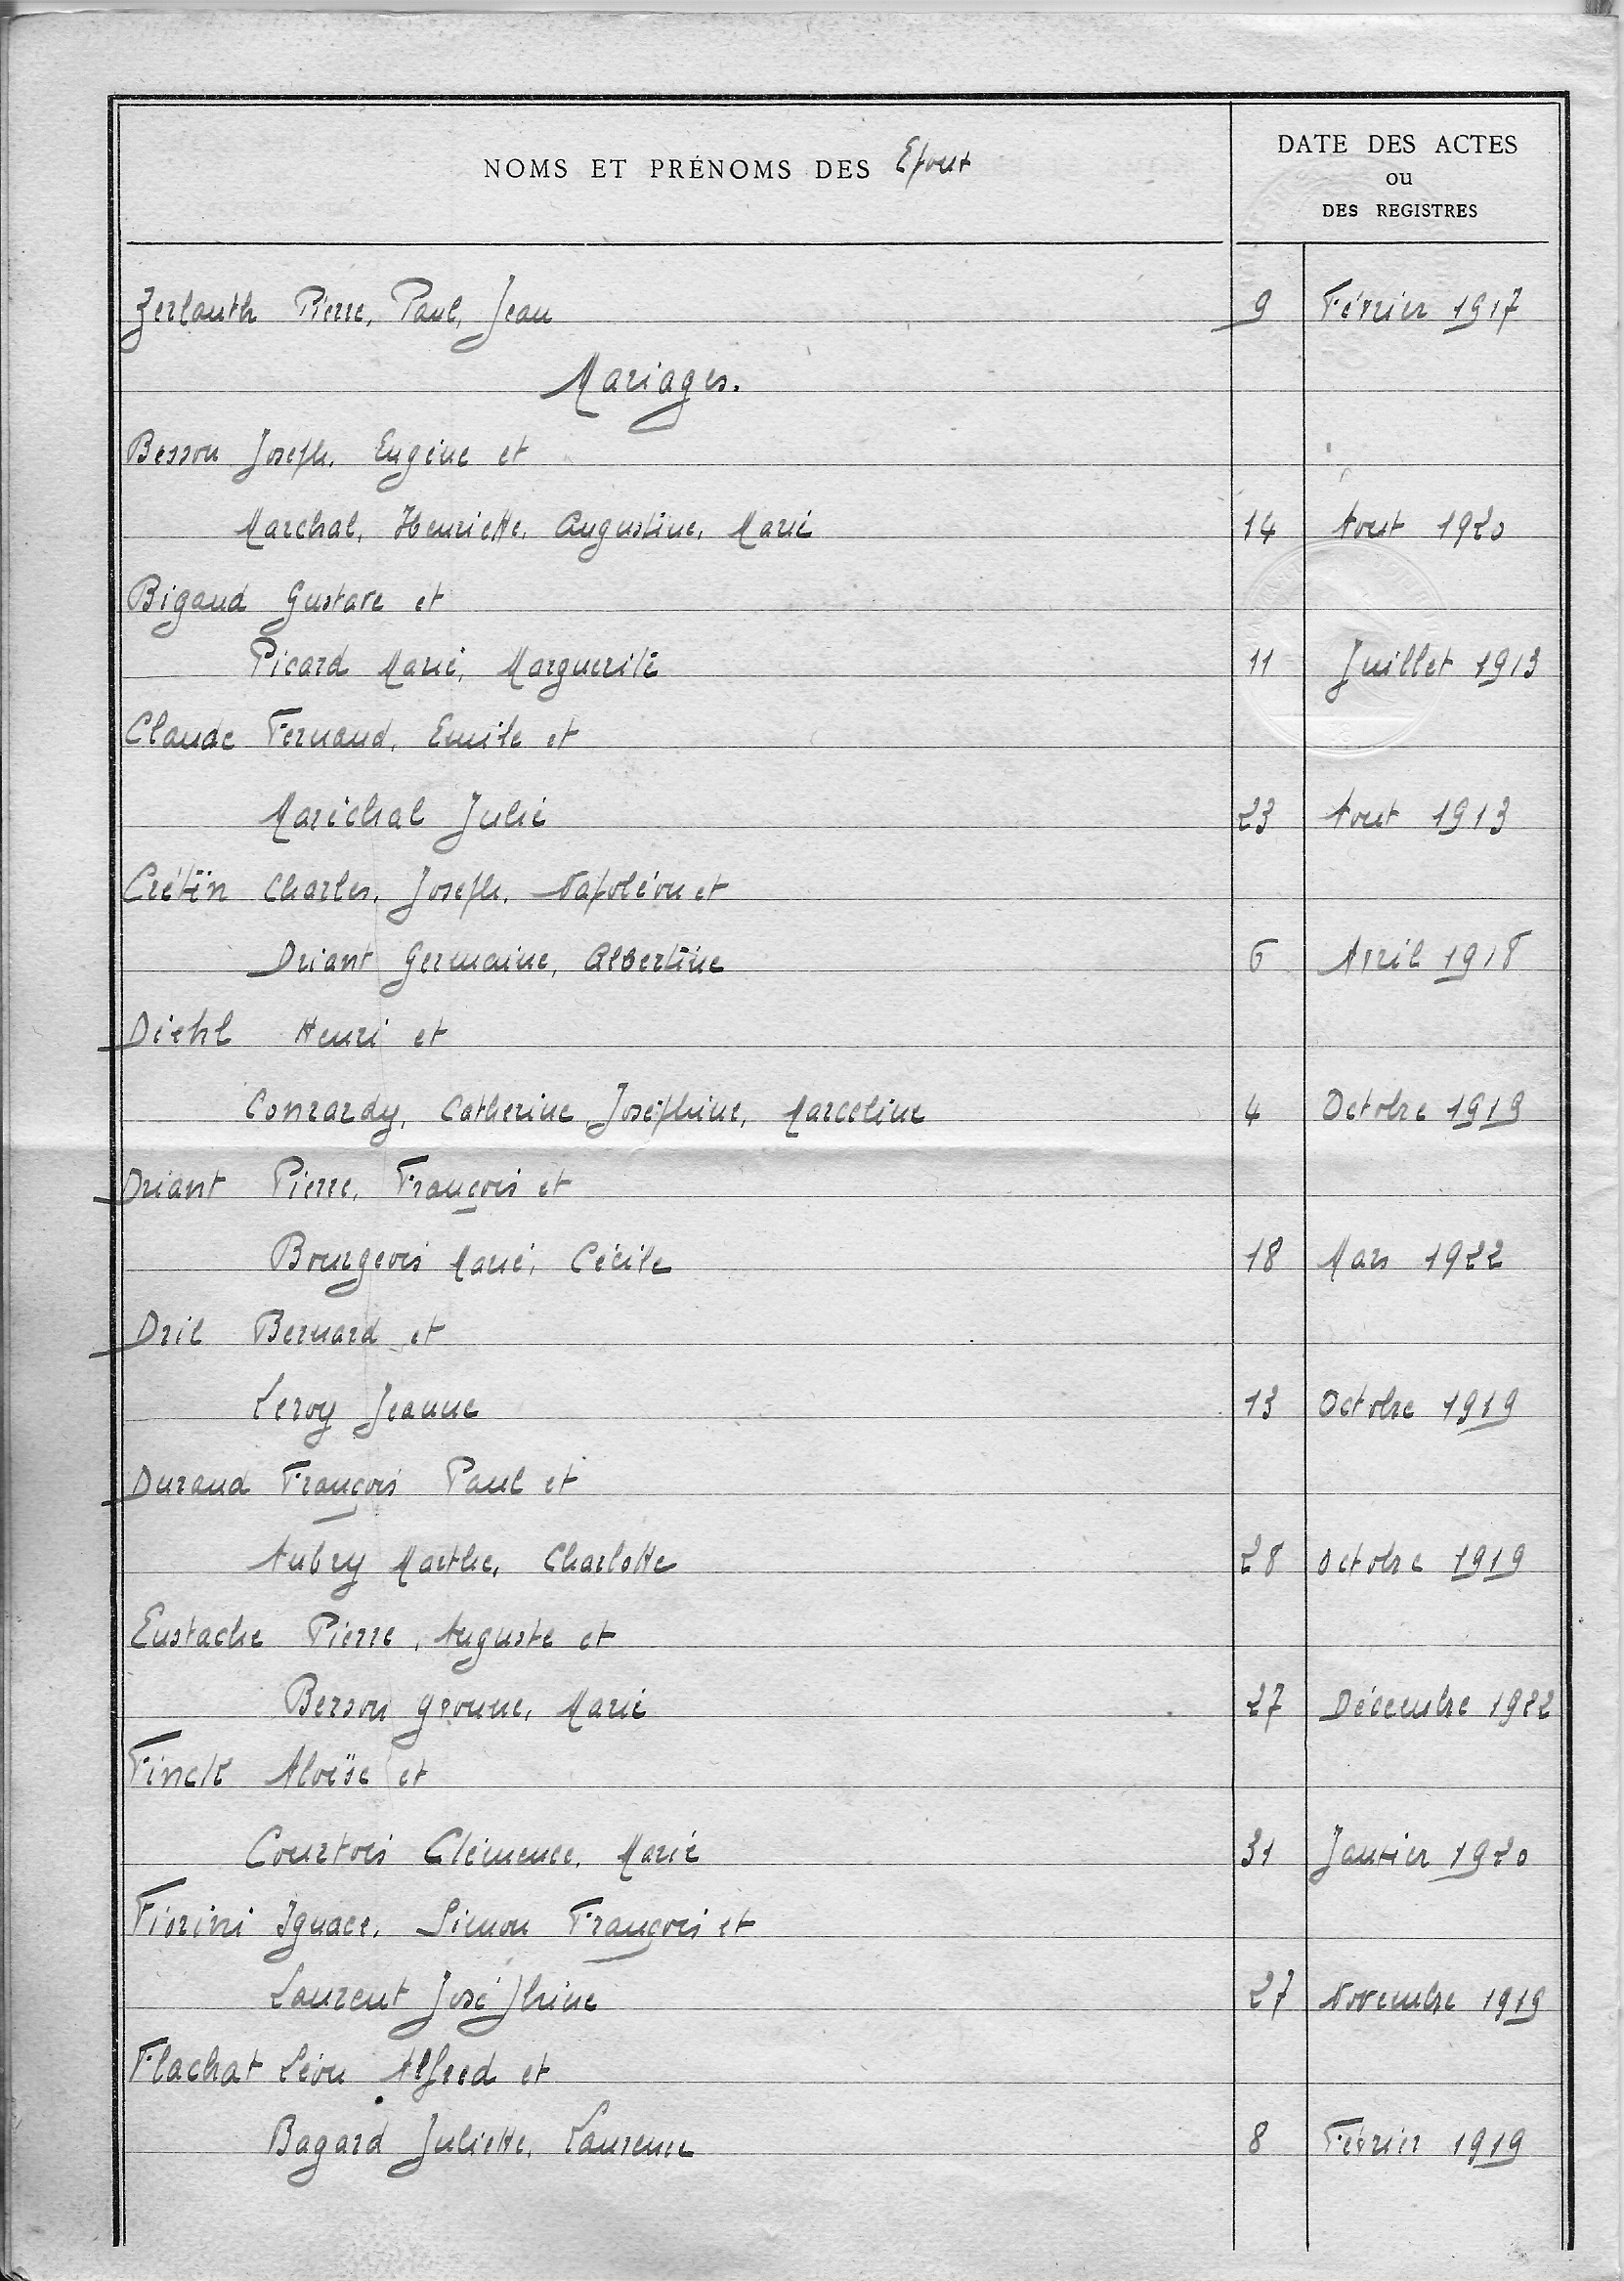 NOMS ET PRÉNOMS DES Epoux
DATE DES ACTES
ou
DES REGISTRES
Zerlauth Pierre, Paul, Jean 9 Février 1917
Mariages.
Besson Joseph, Eugène et
Marchal, Henriette, Augustine, Marie 14 Aout 1920
Bigaud Gustave et
Picard Marie, Marguerite 11 Juillet 1913
Claude Fernand, Emile et
Maréchal Julie 23 Aout 1913
Crétin Charles, Joseph, Napoléon et
Driant Germaine, Albertine 6 Avril 1918
Diehl Henri et
Conrardy, Catherine, Joséphine, Marceline 4 Octobre 1919
Driant Pierre, François et
Bourgeois Marie, Cécile 18 Mars 1922
Dril Bernard et
Leroy Jeanne 13 Octobre 1919
Durand François Paul et
Aubry Marthe, Charlotte 28 Octobre 1919
Eustache Pierre, Auguste et
Besson Yvonne, Marie 27 Décembre 1922
Finck Aloïse et
Courtois Clémence, Marie 31 Janvier 1920
Fiorini Ignace, Simon François et
Laurent Joséphine 27 Novembre 1919
Flachat Léon Alfred et
Bagard Juliette, Laurence 8 Février 1919